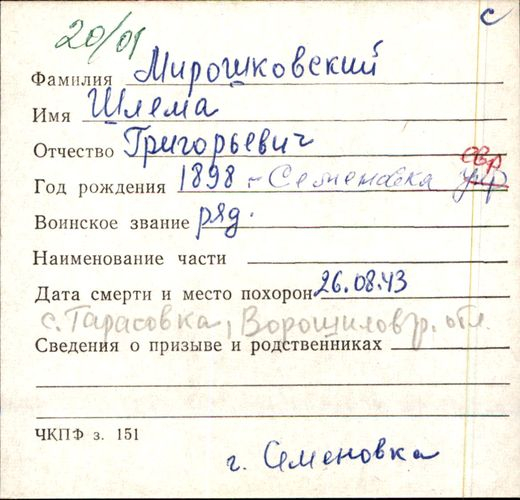 с
20/01
Фамилия Мирошковский
Имя Шлема
Отчество Григорьевич
Год рождения 1898 - Семеновка укр евр
Воинское звание ряд.
Наименование части
Дата смерти и место похорон 26.08.43
с. Тарасовка, Ворошиловгр. обл.
Сведения о призыве и родственниках
ЧКПФ з. 151
г. Семеновка